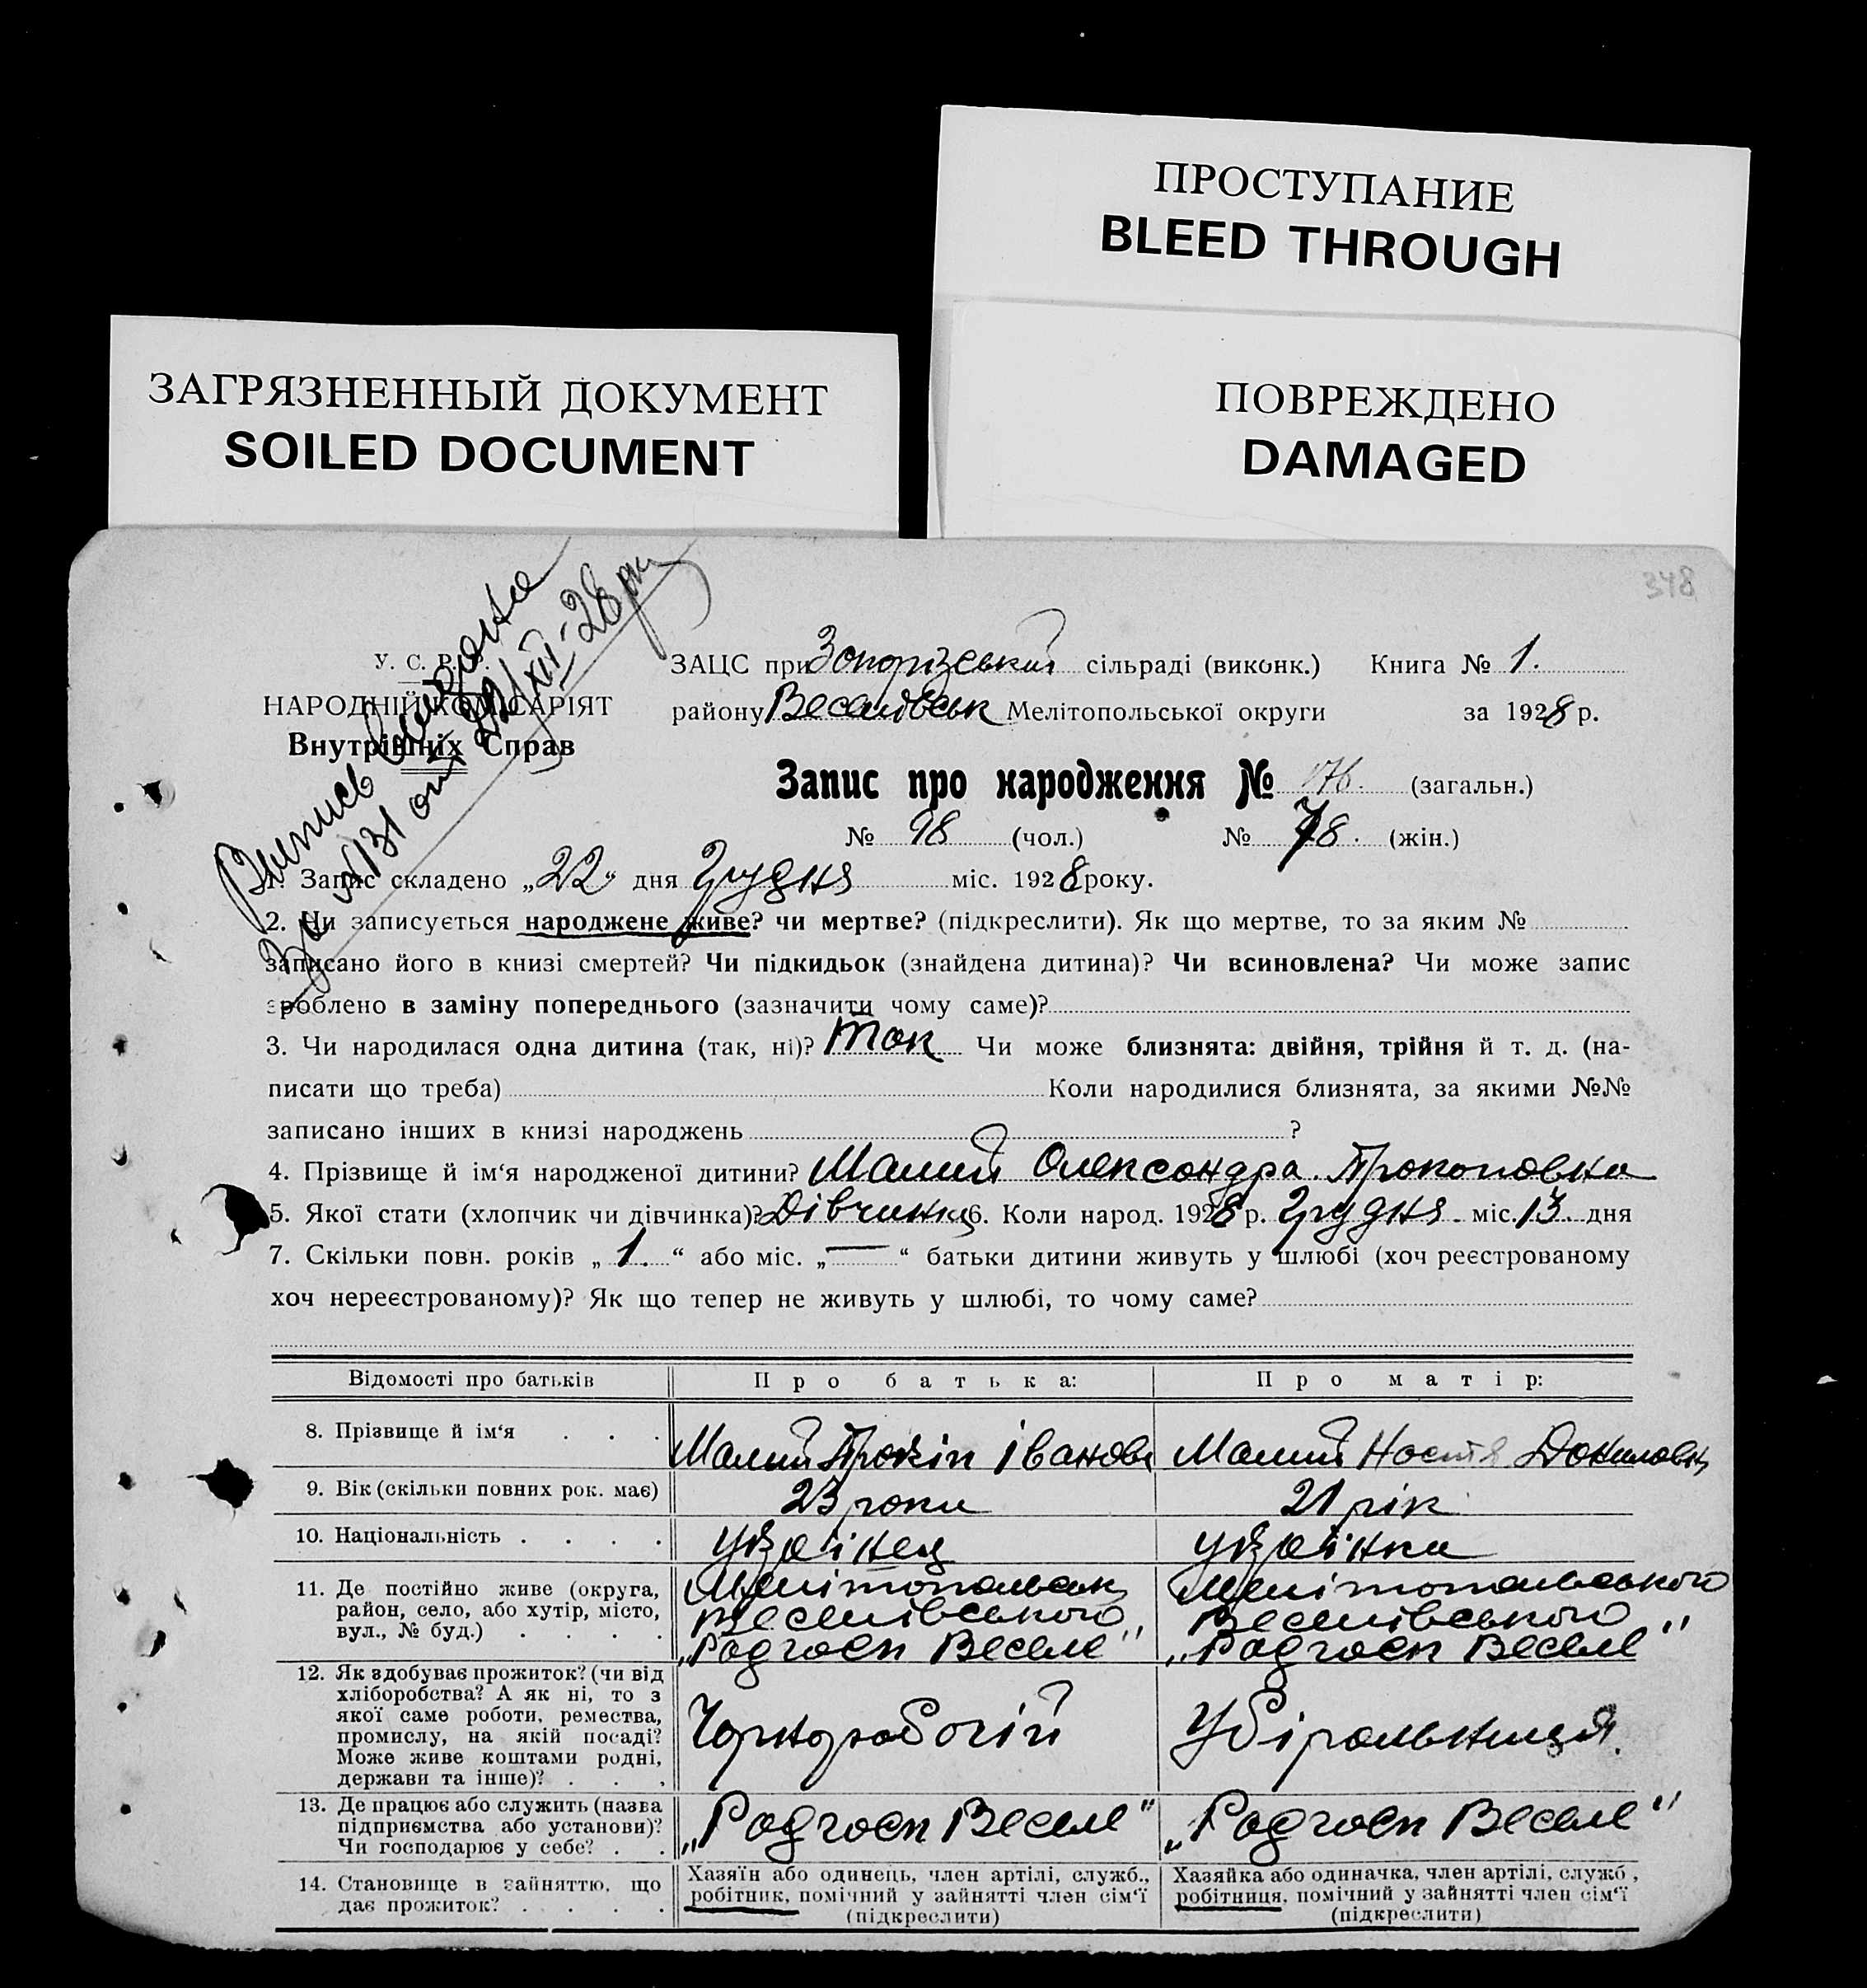 ПРОСТУПАНИЕ
BLEED THROUGH
ЗАГРЯЗНЕННЫЙ ДОКУМЕНТ
SOILED DOCUMENT
ПОВРЕЖДЕНО
DAMAGED
348
У. С. Р. Р.
НАРОДНІЙ КОМІСАРІЯТ
Внутрішніх Справ
Випись
За № 131 від 22/XII-28 р
ЗАЦС при Запорізський сільраді (виконк.) Книга № 1.
району Веселівськ Мелітопольської округи за 1928 р.
Запис про народження № 176. (загальн.)
№ 98 (чол.) № 78. (жін.)
1. Запис складено „22“ дня Грудня міс. 1928 року.
2. Чи записується народжене живе? чи мертве? (підкреслити). Як що мертве, то за яким №
записано його в книзі смертей? Чи підкидьок (знайдена дитина)? Чи всиновлена? Чи може запис
зроблено в заміну попереднього (зазначити чому саме)?
3. Чи народилася одна дитина (так, ні)? Так Чи може близнята: двійня, трійня й т. д. (на-
писати що треба) Коли народилися близнята, за якими №№
записано інших в книзі народжень ?
4. Прізвище й ім‘я народженої дитини? Малий Олександра Прокоповна
5. Якої стати (хлопчик чи дівчинка)? Дівчинка 6. Коли народ. 1928 р. Грудня міс. 13 дня
7. Скільки повн. років „1.“ або міс. „—“ батьки дитини живуть у шлюбі (хоч реєстрованому
хоч нереєстрованому)? Як що тепер не живуть у шлюбі, то чому саме?
Відомості про батьків Про батька: Про матір:
8. Прізвище й ім‘я Малий Прокіп Іванов Малий Настя Даниловн
9. Вік (скільки повних рок. має) 23 роки 21 рік
10. Національність Українец Українка
11. Де постійно живе (округа, Мелітопольськ Мелітопольського
район, село, або хутір, місто, Веселівського Веселівського
вул., № буд.) „Радгосп Веселе“ „Радгосп Веселе“
12. Як здобуває прожиток? (чи від
хліборобства? А як ні, то з
якої саме роботи, ремества,
промислу, на якій посаді? Чорноробочій Убіральниця
Може живе коштами родні,
держави та інше)?
13. Де працює або служить (назва
підприємства або установи)? „Радгосп Веселе“ „Радгосп Веселе“
Чи господарює у себе?
14. Становище в зайняттю, що Хазяїн або одинець, член артілі, служб., Хазяйка або одиначка, член артілі, служб.,
дає прожиток? робітник, помічний у зайнятті член сім‘ї робітниця, помічний у зайнятті член сім‘ї
(підкреслити) (підкреслити)